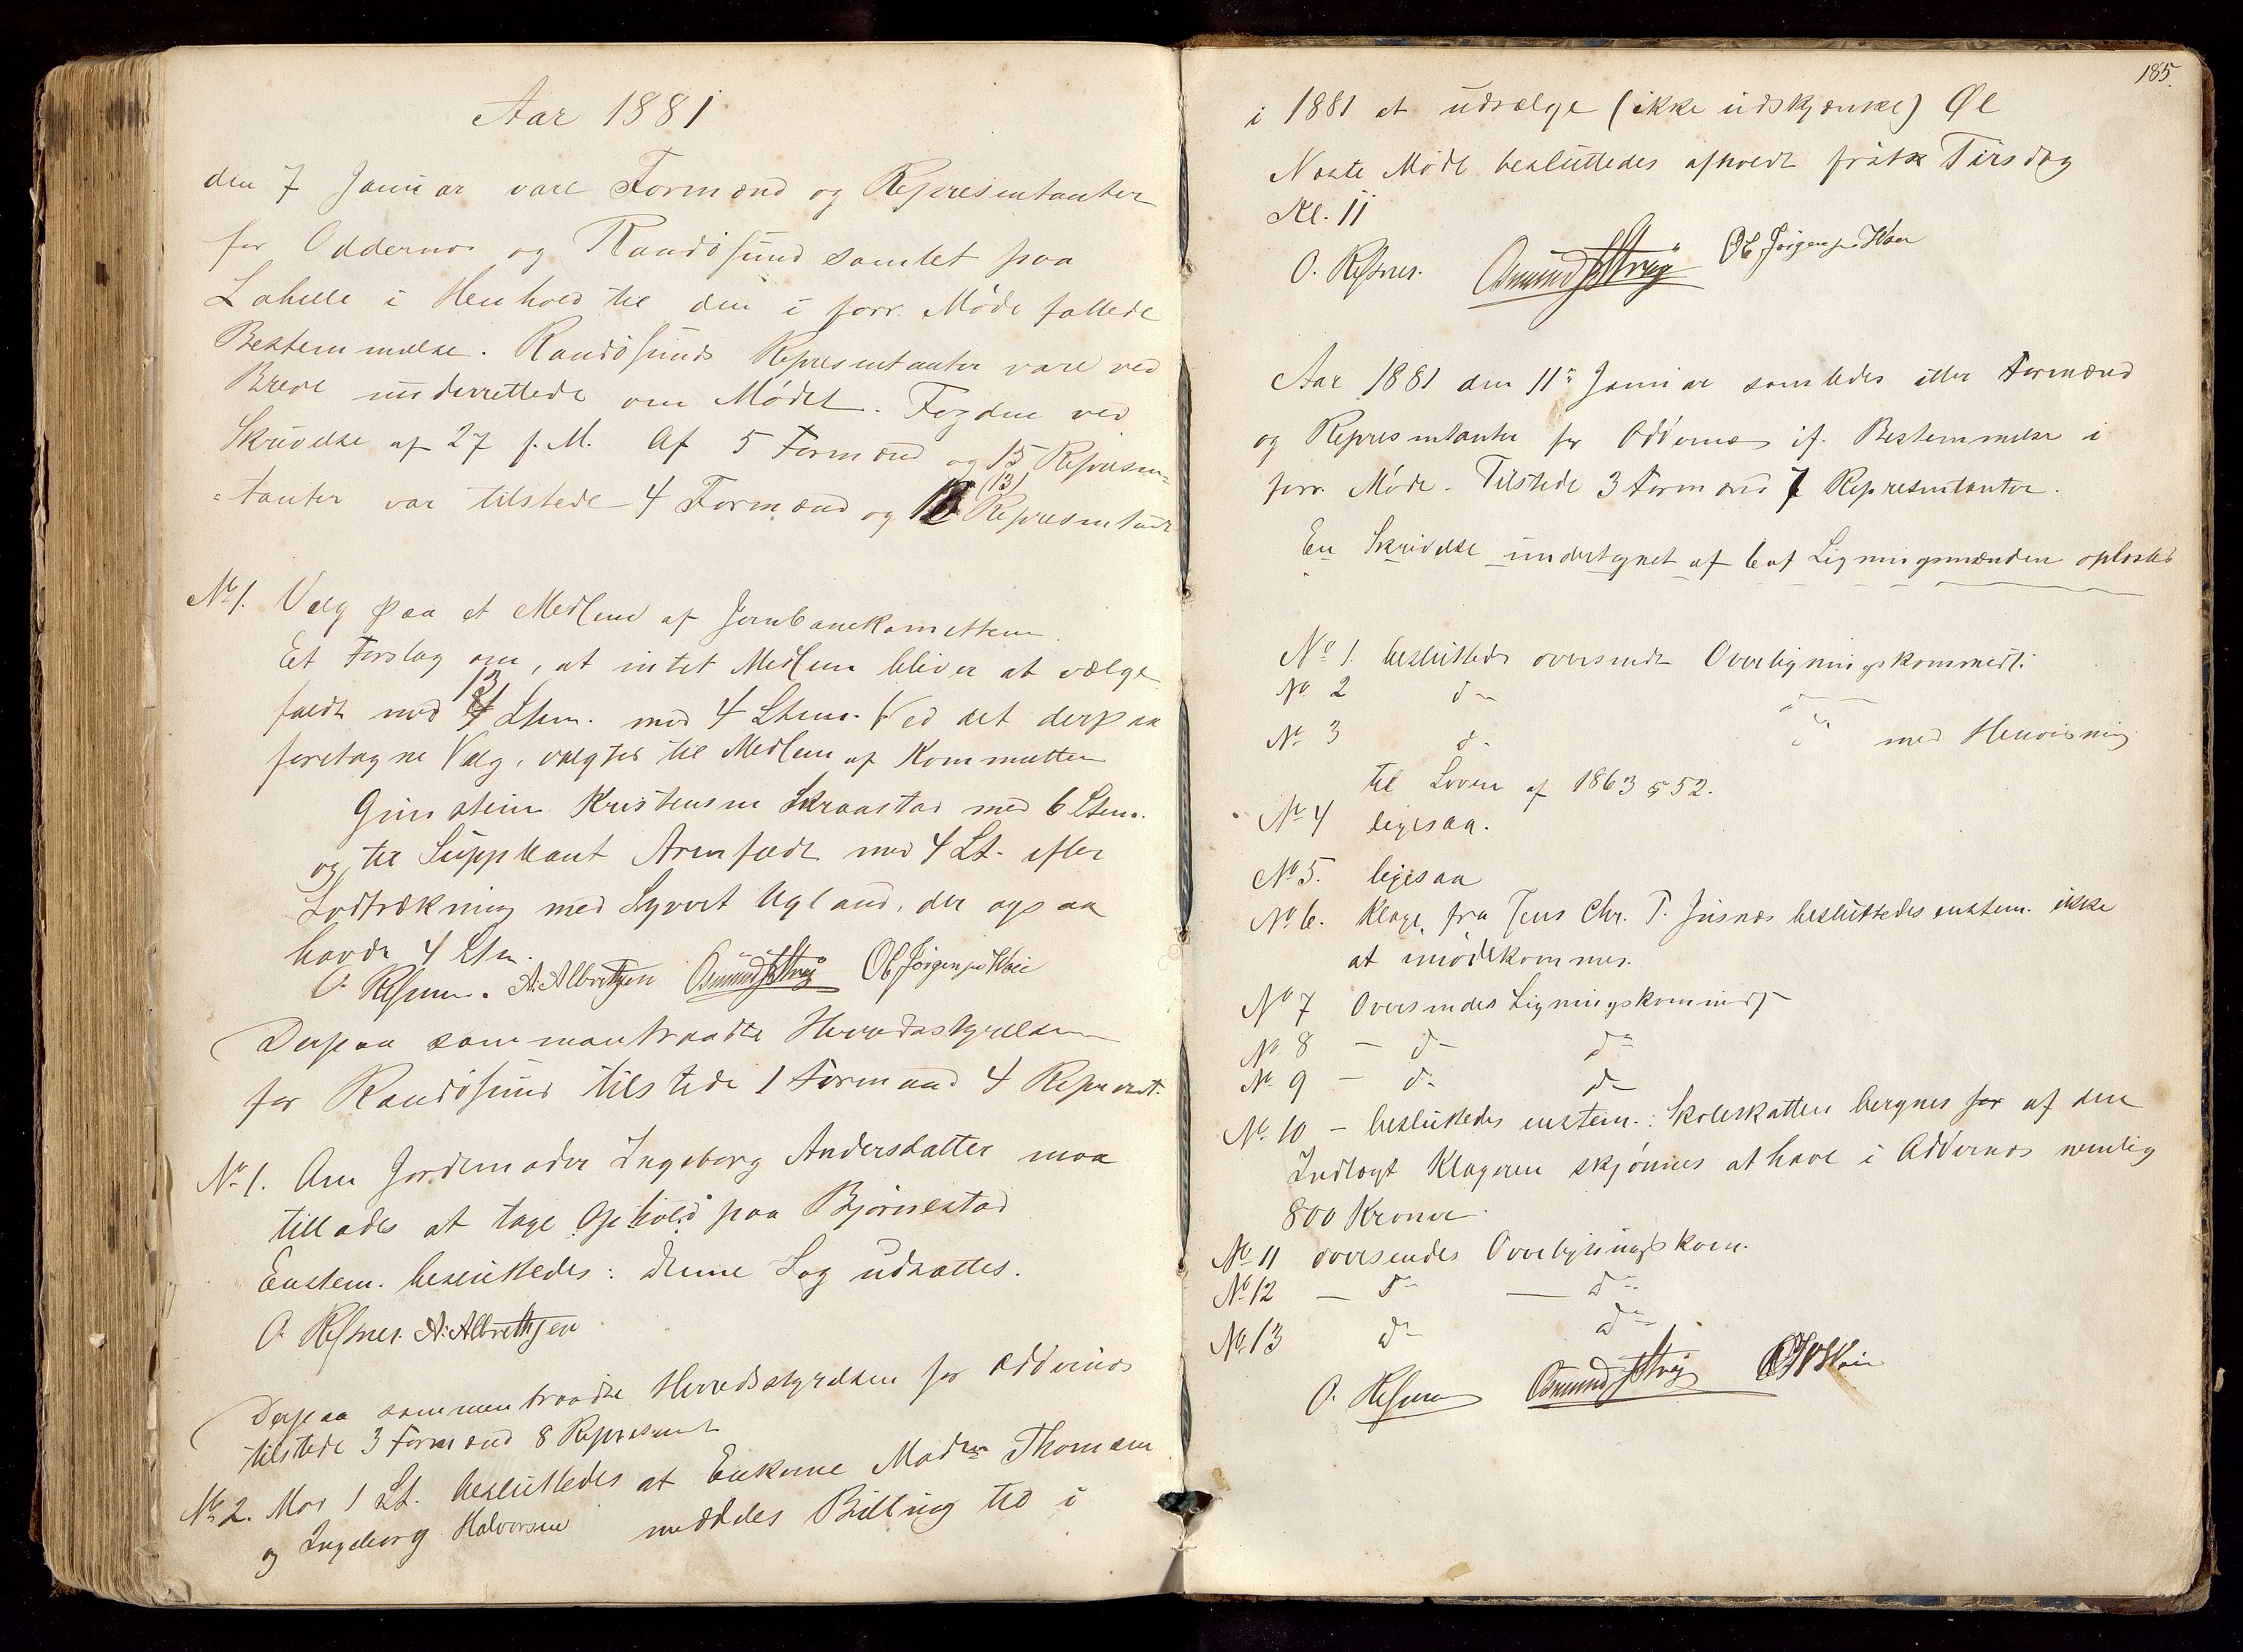 Aar 1881
den 7 Januar vare Formænd og Representanter
for Oddernes og Randøsund samlet paa
Lahelle i Henhold til den i forr. Møde fattede
Bestemmelse. Randøsunds Representanter vare ved
Breve underrettede om Mødet. Fogden ved
Skrivelse af 27 f. M. Af 5 Formænd og 15 Represen=
=tanter var tilstede 4 Formænd og 13 (13) Representantr
No 1. Valg paa et Medlem af Jernbanekomitteen.
Et Forslag om, at intet Medlem bliver at vælge
faldt med 13 Stem. mod 4 Stem. Ved det derpaa
foretagne Valg, valgtes til Medlem af Kommitteen
Gunstein Kristensen Skraastad med 6 Stem.
og til Suppleant Arenfeldt med 4 St. efter
Lodtrækning med Syvert Ugland, der ogsaa
havde 4 Stm.
O. Refsnes. A. Albrethsen Osmund Strøj Ol. Jørgensen Koie
Derpaa sammentraadte Herredsstyrelsen
for Randøsund tilstede 1 Formand 4 Represent.
No 1. Om Jordemoder Ingeborg Andersdatter maa
tillades at tage Ophold paa Bjørnestad
Enstem. besluttedes: denne Sag udsattes.
O. Refsnes. A. Albrethsen
Derpaa sammentraadte Herredsstyrelsen for Oddernes
tilstede 3 Formænd 8 Represent
No 2. Mod 1 St. besluttedes at Enkerne Madm Thomsen
og Ingeborg Halvorsen meddeles Billing til i
185.
i 1881 at udsælge (ikke udskjænke) Øl
Næste Møde besluttedes afholdt førstk Tirsdag
Kl. 11
O. Refsnes. Osmund Strøj Ol. Jørgensen Koie
Aar 1881 den 11te Januar samledes atter Formænd
og Representanter for Oddernes if. Bestemmelse i
forr. Møde. Tilstede 3 Formænd 7 Representanter.
En Skrivelse undertegnet af 6 af Ligningsmænden oplæstes
No 1. besluttedes oversendt Overligningskommedt.
No 2 do do
No 3 do do med Henvisning
til Loven af 1863 § 52.
No 4 ligesaa.
No 5. ligesaa
No 6. Klage fra Jens Chr. T. Jusnæs besluttedes enstem. ikke
at imødekommes.
No 7 Oversendes Ligningskommedt
No 8 – do do
No 9 – do do
No 10 – besluttedes enstem.: Skoleskatten beregnes for af den
Indtægt Klageren skjønnes at have i Oddernes nemlig
800 Kroner.
No 11 oversendes Overligningskom.
No 12 — do — do
No 13 do do
O. Refsnes Osmund Strøj